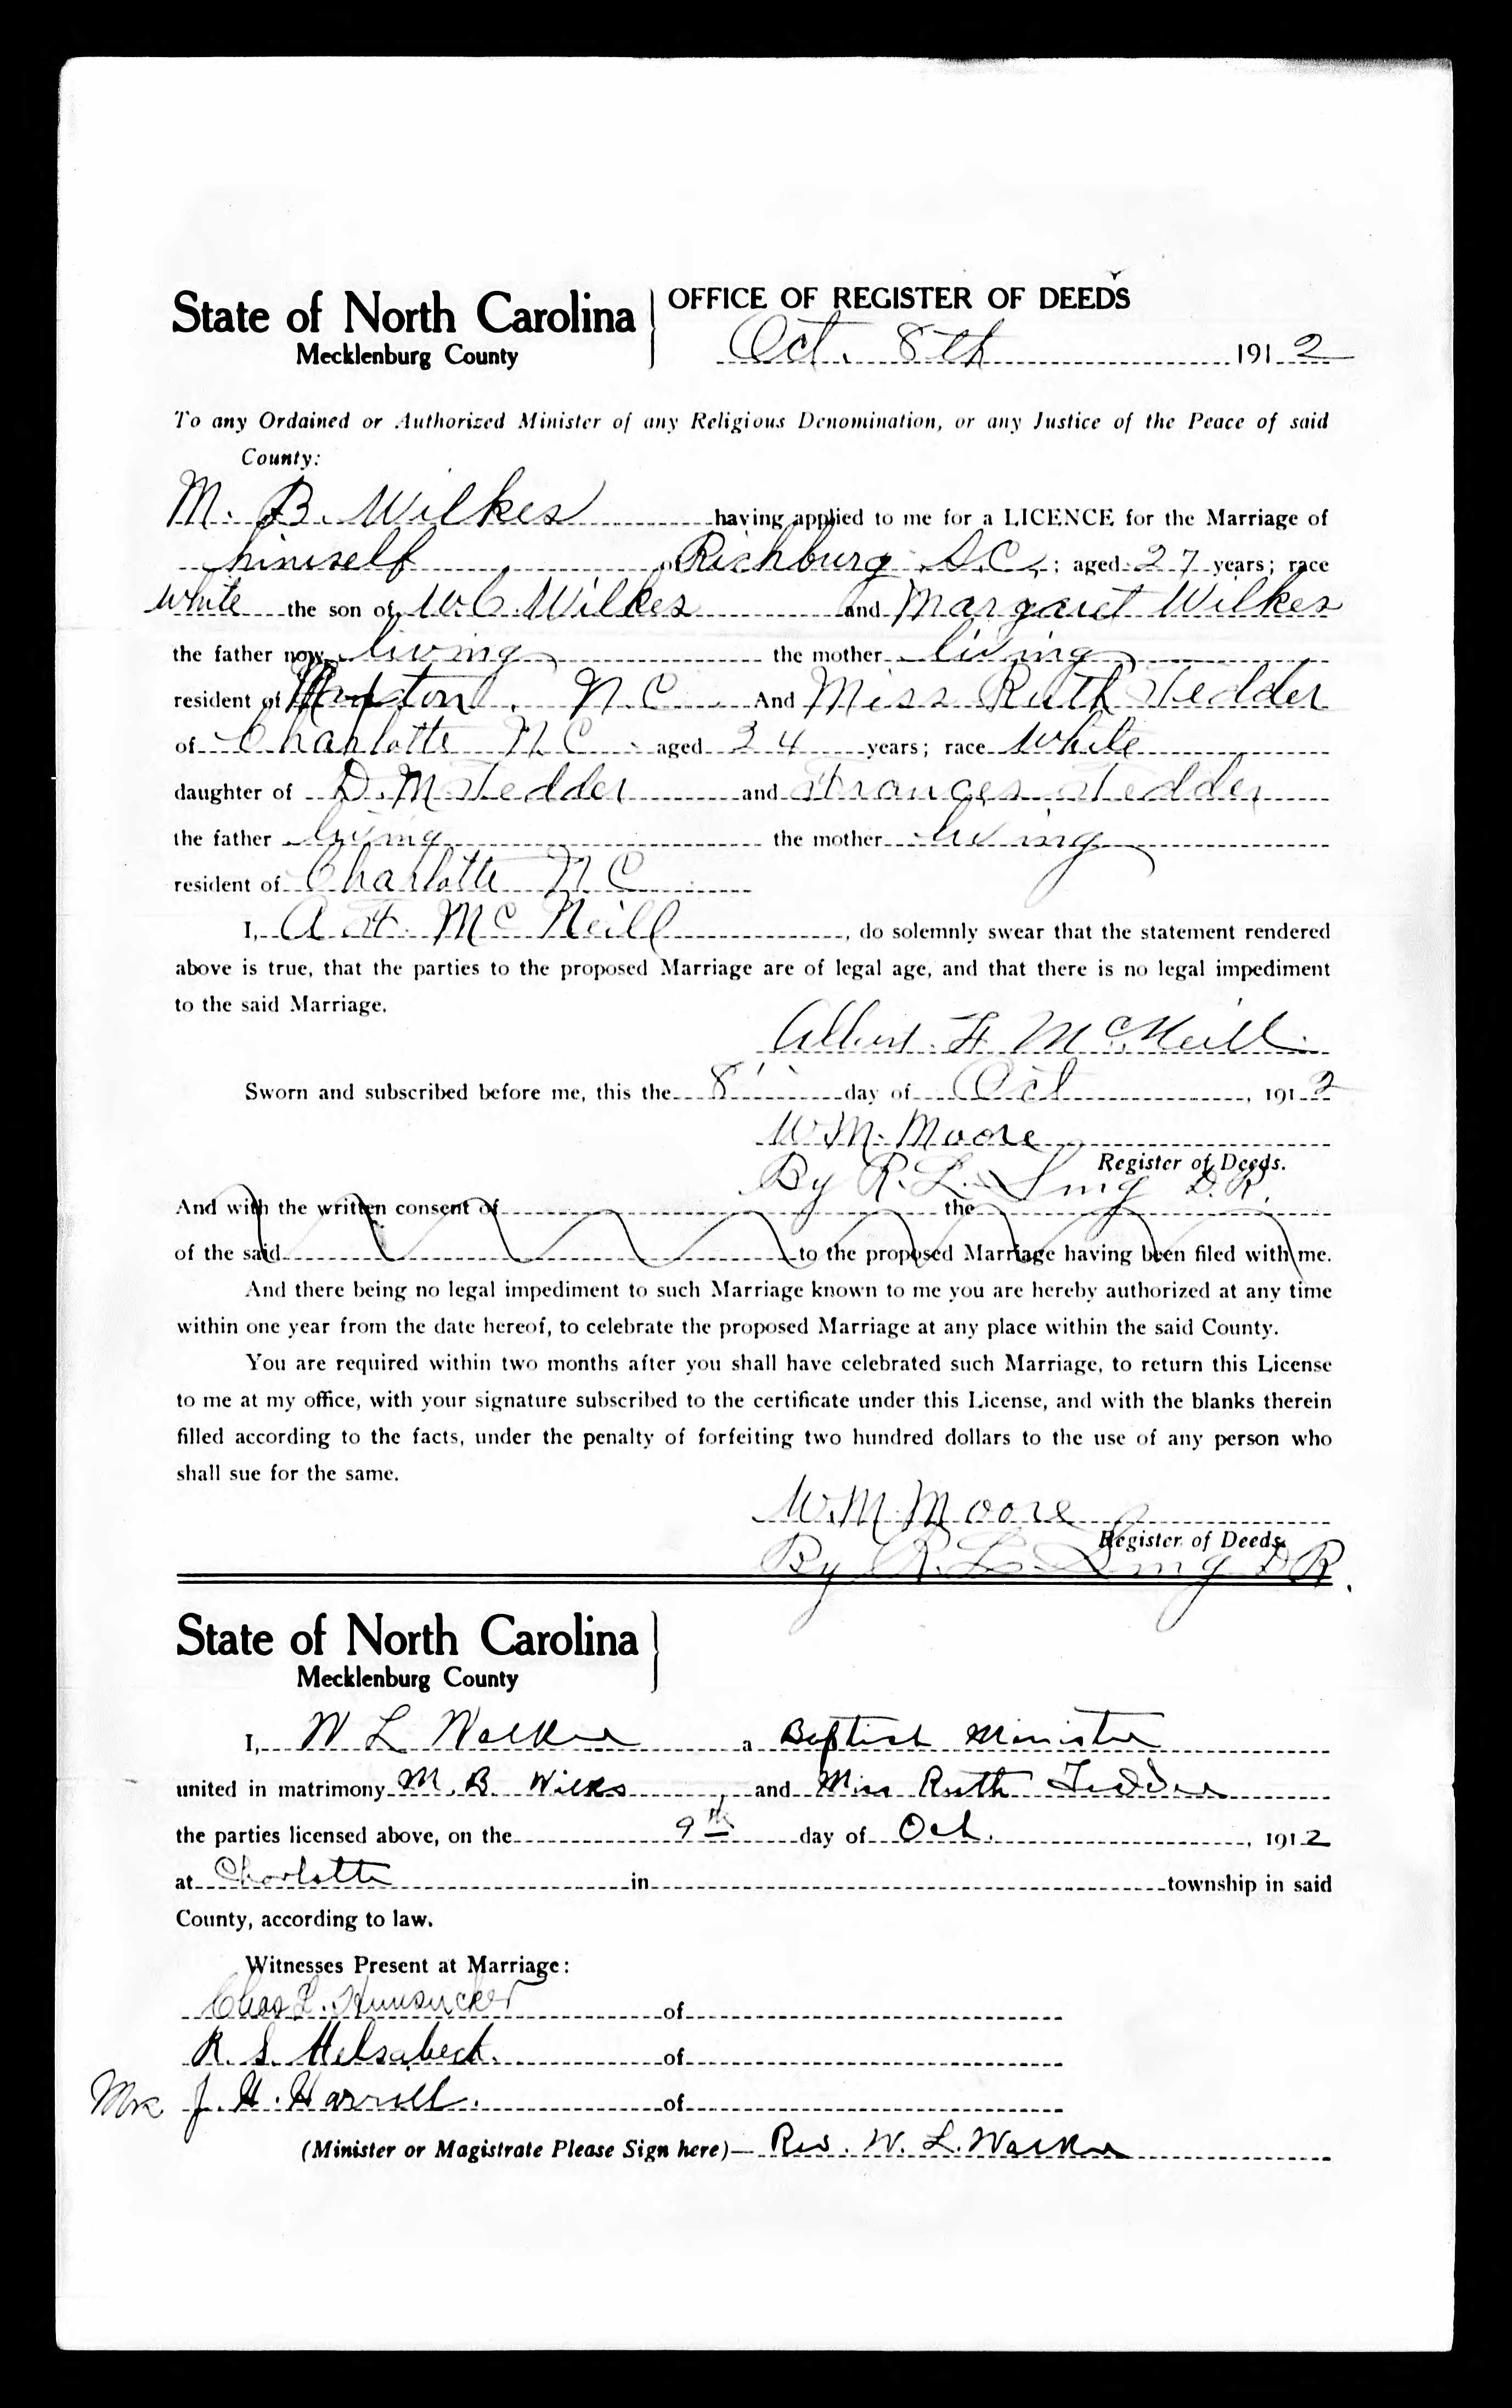 State of North Carolina
Mecklenburg County
OFFICE OF REGISTER OF DEEDS
Oct. 8th 1912
To any Ordained or Authorized Minister of any Religious Denomination, or any Justice of the Peace of said
County:
M. B. Wilkes having applied to me for a LICENCE for the Marriage of
himself of Richburg S.C. ; aged 27 years; race
white the son of W.C. Wilkes and Margaret Wilkes
the father now living the mother living
resident of N.C. And Miss Ruth Tedder
of Charlotte N C aged 24 years; race White
daughter of D. M. Tedder and Frances Tedder
the father living the mother living
resident of Charlotte N C
I, A. F. McNeill, do solemnly swear that the statement rendered
above is true, that the parties to the proposed Marriage are of legal age, and that there is no legal impediment
to the said Marriage.
Albert F. McNeill
Sworn and subscribed before me, this the 8 day of Oct, 1912
W. M. Moore
Register of Deeds.
By R. L. D. R.
And with the written consent of the
of the said to the proposed Marriage having been filed with me.
And there being no legal impediment to such Marriage known to me you are hereby authorized at any time
within one year from the date hereof, to celebrate the proposed Marriage at any place within the said County.
You are required within two months after you shall have celebrated such Marriage, to return this License
to me at my office, with your signature subscribed to the certificate under this License, and with the blanks therein
filled according to the facts, under the penalty of forfeiting two hundred dollars to the use of any person who
shall sue for the same.
W. M. Moore
Register of Deeds.
By R. L. D R.
State of North Carolina
Mecklenburg County
I, W L Walker a Baptist Minister
united in matrimony M. B. Wilks and Miss Ruth Tedder
the parties licensed above, on the 9th day of Oct., 1912
at Charlotte in township in said
County, according to law.
Witnesses Present at Marriage:
Chas L. Hunsucker of
R. S. Helsabeck. of
Mrs J. H. Harrill. of
(Minister or Magistrate Please Sign here)— Rev. W. L. Walker